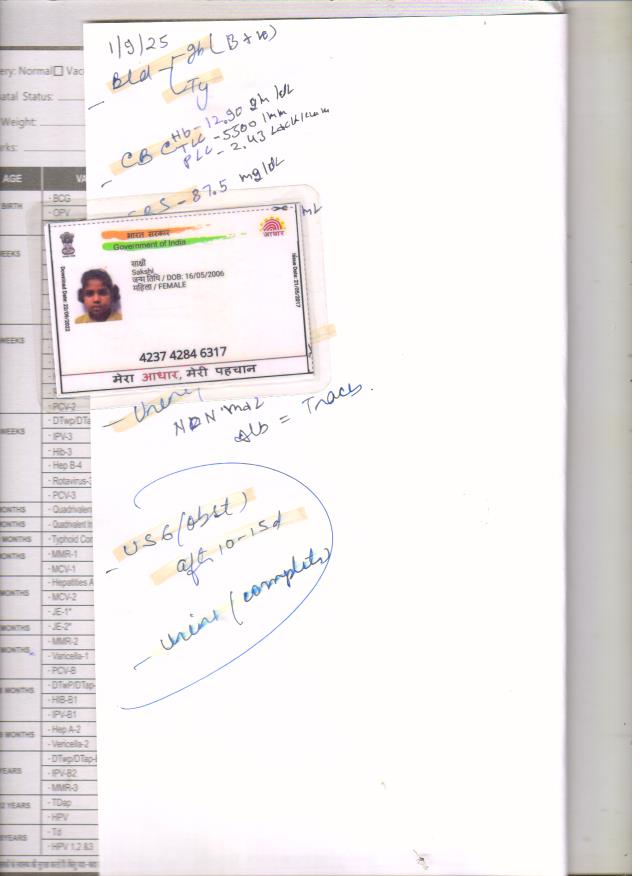 1/9/25
- Bld - gb (B +ve)
Ty
- CBC Hb - 12.90 gm/dl
TLC - 5500 /mm
PLC - 2.43 Lack/cumm
- 87.5 mg/dl
mL
भारत सरकार
Government of India
आधार
साक्षी
Sakshi
जन्म तिथि / DOB: 16/05/2006
महिला / FEMALE
4237 4284 6317
मेरा आधार, मेरी पहचान
Alb = Traces.
- USG (obst)
aft 10-15d
- Urine (complete)
ery: Normal Vac
atal Status:
Weight:
rks:
AGE
VA
BIRTH
- BCG
- OPV
WEEKS
WEEKS
- PCV-2
WEEKS
- DTwp/DTa
- IPV-3
- Hib-3
- Hep B-4
- Rotavirus-3
- PCV-3
MONTHS
- Quadrivalen
MONTHS
- Quadrivalent In
MONTHS
- Typhoid Con
MONTHS
- MMR-1
- MCV-1
MONTHS
- Hepatities A
- MCV-2
- JE-1*
MONTHS
- JE-2*
MONTHS
- MMR-2
- Varicella-1
- PCV-B
MONTHS
- DTwP/DTap-
- HIB-B1
- IPV-B1
MONTHS
- Hep A-2
- Vericella-2
YEARS
- DTwp/DTap-
- IPV-B2
- MMR-3
2 YEARS
- TDap
- HPV
YEARS
- Td
- HPV 1,2 &3